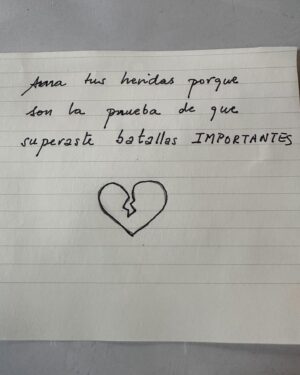 Ama tus heridas porque
son la prueba de que
superaste batallas IMPORTANTES